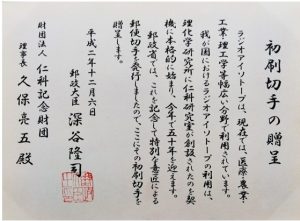 初刷切手の贈呈
ラジオアイソトープは、現在では、医療、農業、
工業、理工学等幅広い分野で利用されています。
我が国におけるラジオアイソトープの利用は、
理化学研究所に仁科研究室が創設されたのを契
機に本格的に始まり、今年で五十年を迎えます。
郵政省では、これを記念して特別な意匠による
郵便切手を発行しましたので、ここにその初刷切手を
贈呈します。
平成二年十二月六日
郵政大臣 深谷隆司
財団法人 仁科記念財団
理事長 久保亮五殿